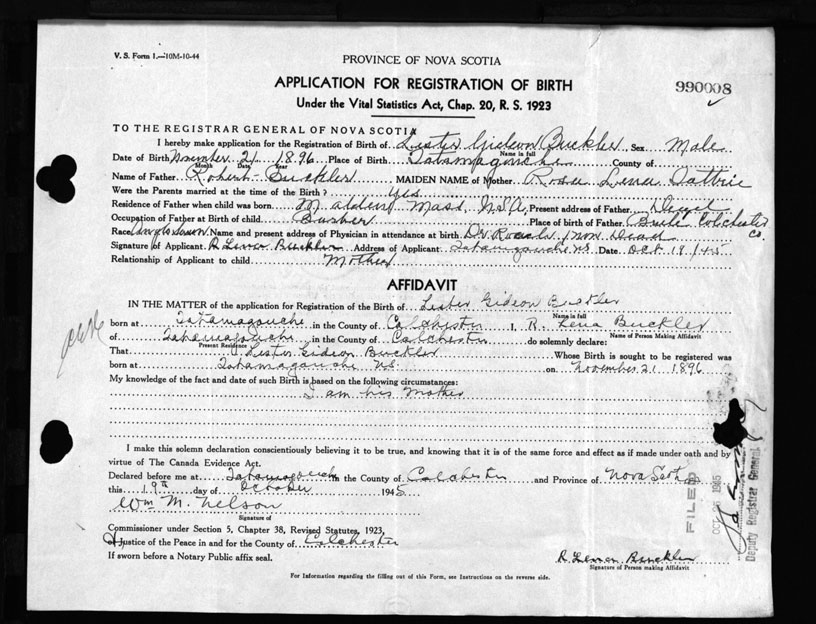 V. S. Form 1.—10M-10-44
PROVINCE OF NOVA SCOTIA
APPLICATION FOR REGISTRATION OF BIRTH
990008
Under the Vital Statistics Act, Chap. 20, R. S. 1923
TO THE REGISTRAR GENERAL OF NOVA SCOTIA
I hereby make application for the Registration of Birth of Lester Gideon Buckler Sex Male
Name in full
Date of Birth November 21 1896 Place of Birth Tatamagouche County of
Month Date Year
Name of Father Robert Buckler MAIDEN NAME of Mother Rosa Lena Tattrie
Were the Parents married at the time of the Birth? yes
Residence of Father when child was born Malden Mass, U.S.A, Present address of Father Dead
Occupation of Father at Birth of child Place of birth of Father Colchester Co.
Race Anglo Saxon Name and present address of Physician in attendance at birth Dr Roach now Dead
Signature of Applicant R Lenor Buckler Address of Applicant Tatamagouche N.S. Date Oct 18/45
Relationship of Applicant to child Mother
AFFIDAVIT
IN THE MATTER of the application for Registration of the Birth of Lester Gideon Buckler
Name in full
born at Tatamagouche in the County of Colchester I, R. Lena Buckler
Name of Person Making Affidavit
of Tatamagouche in the County of Colchester do solemnly declare:
Present Residence
That Lester Gideon Buckler Whose Birth is sought to be registered was
born at Tatamagouche N.S. on November 21 1896
My knowledge of the fact and date of such Birth is based on the following circumstances:
I am his Mother
I make this solemn declaration conscientiously believing it to be true, and knowing that it is of the same force and effect as if made under oath and by
virtue of The Canada Evidence Act.
Declared before me at Tatamagouche in the County of Colchester and Province of Nova Scotia
this 19th day of October 1945
Wm M. Nelson
Signature of
Commissioner under Section 5, Chapter 38, Revised Statutes, 1923,
Justice of the Peace in and for the County of Colchester
If sworn before a Notary Public affix seal.
R Lenor Buckler
Signature of Person making Affidavit
For Information regarding the filling out of this Form, see Instructions on the reverse side.
FILED
Deputy Registrar General